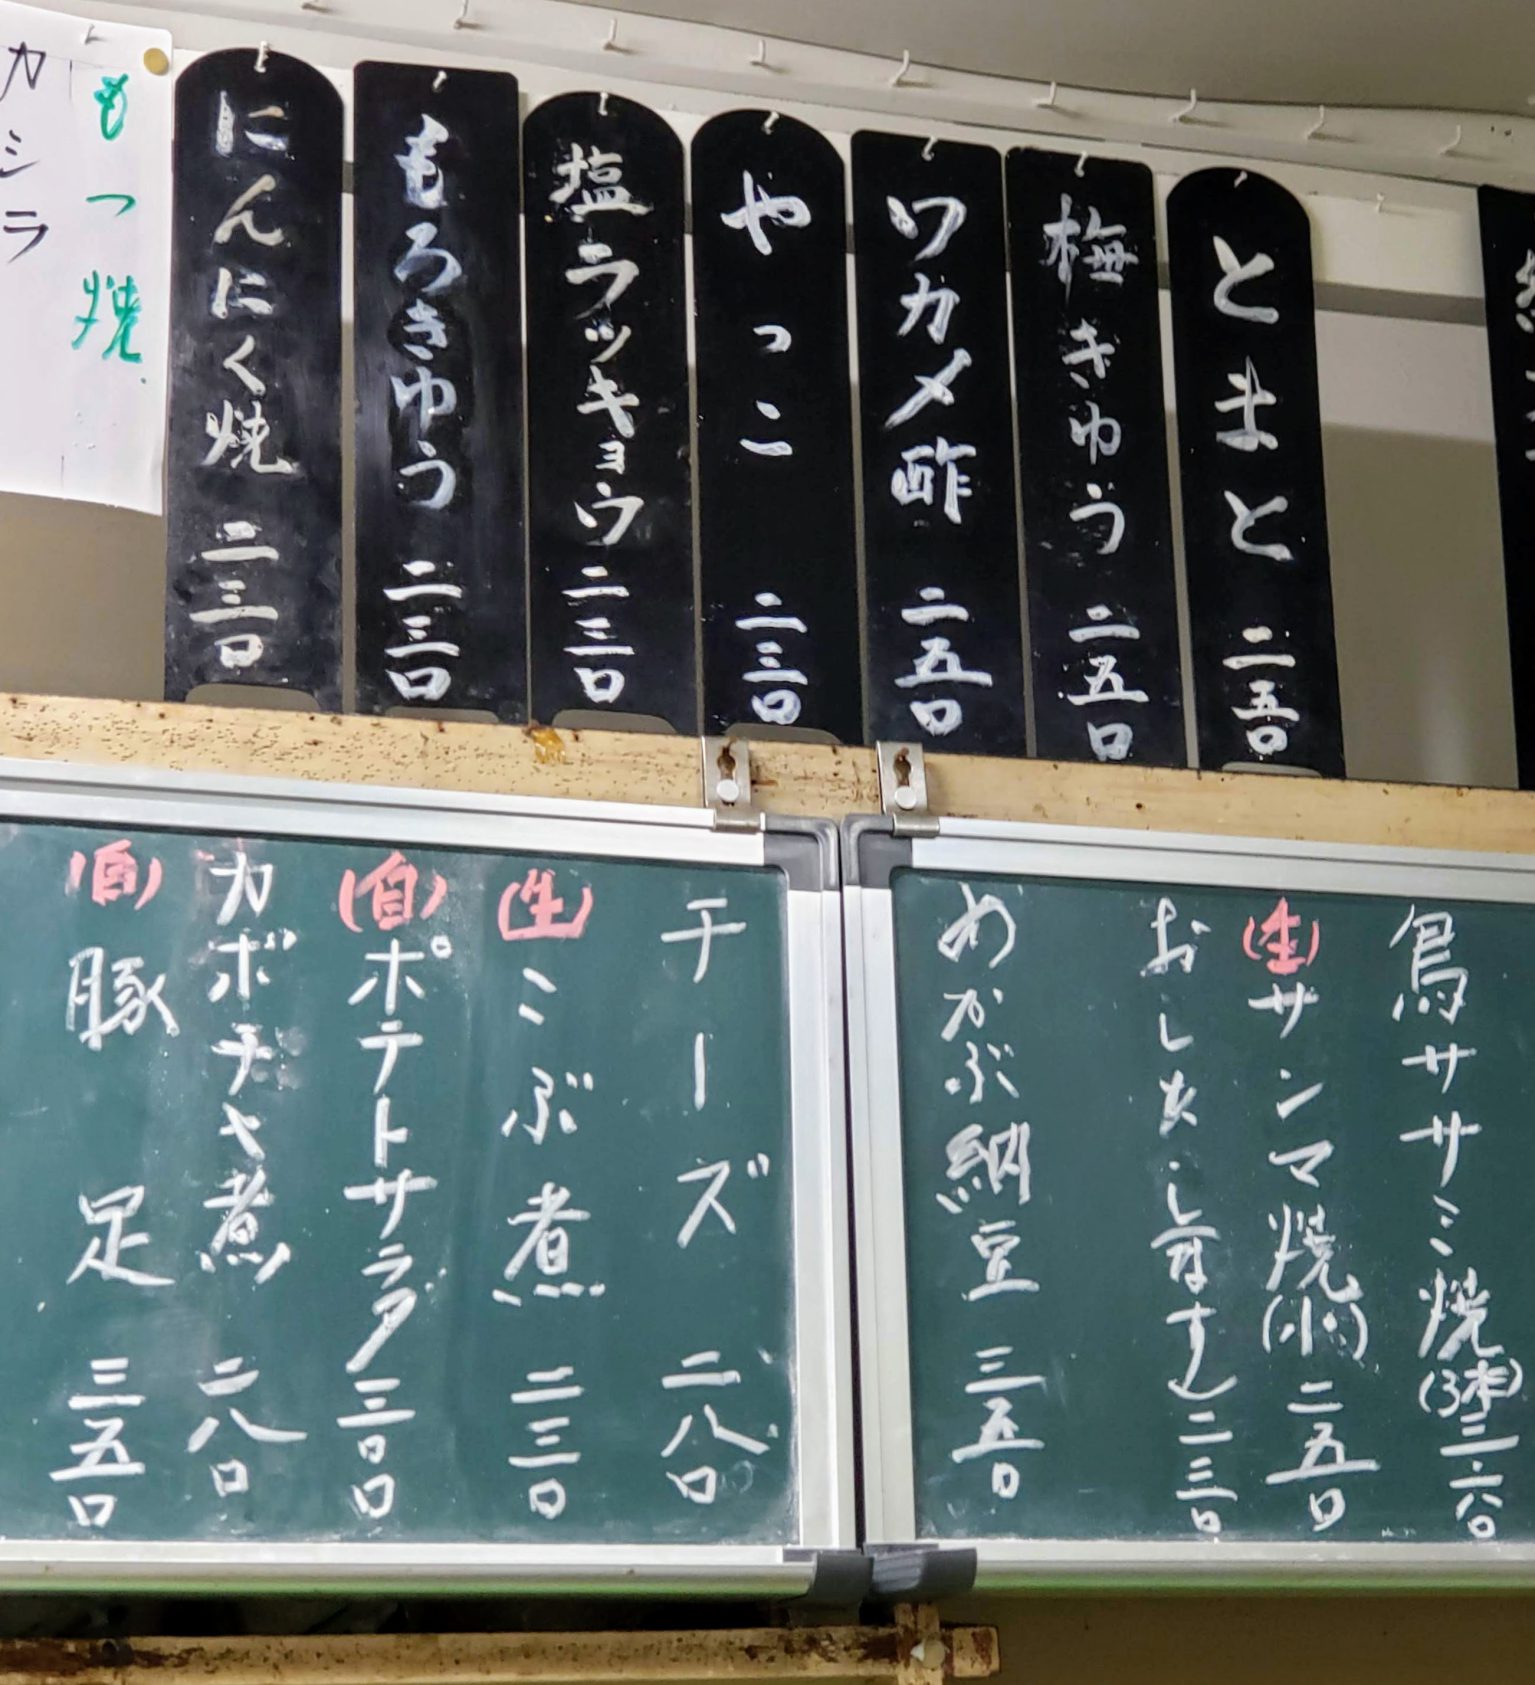 とまと 二五〇
梅きゅう 二五〇
ワカメ酢 二五〇
やっこ 二三〇
塩ラッキョウ 二三〇
もろきゅう 二三〇
にんにく焼 二三〇
もつ焼
カシラ
鳥ササミ焼(3本)三六〇
(生)サンマ焼(小) 二五〇
おしんこ 二三〇
めかぶ納豆 三五〇
チーズ 二八〇
(生)ミぶ煮 二三〇
(自)ポテトサラダ 三〇〇
カボチャ煮 二八〇
(自)豚足 三五〇